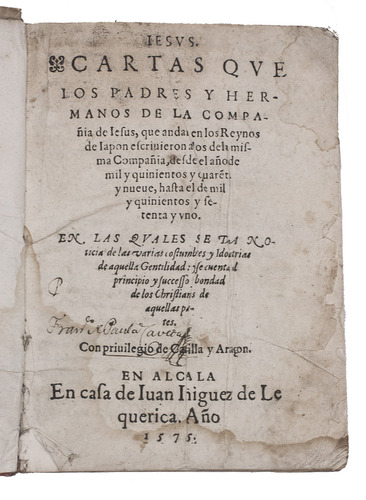 IESVS.
CARTAS QVE
LOS PADRES Y HER-
MANOS DE LA COMPA-
ñia de Iesus, que andan en los Reynos
de Iapon escriuieron alos dela mis-
ma Compañia, desde el año de
mil y quinientos y quarēt.
y nueue, hasta el de mil
y quinientos y se-
tenta y vno.
EN LAS QVALES SE DA NO-
ticia de las varias costumbres y Idolatrias
de aquella Gentilidad: y se cuenta el
principio y successo y bondad
de los Christianos de
aquellas par-
tes.
P
Con priuilegio de Castilla y Aragon.
EN ALCALA
En casa de Iuan Iñiguez de Le
querica. Año
1575.